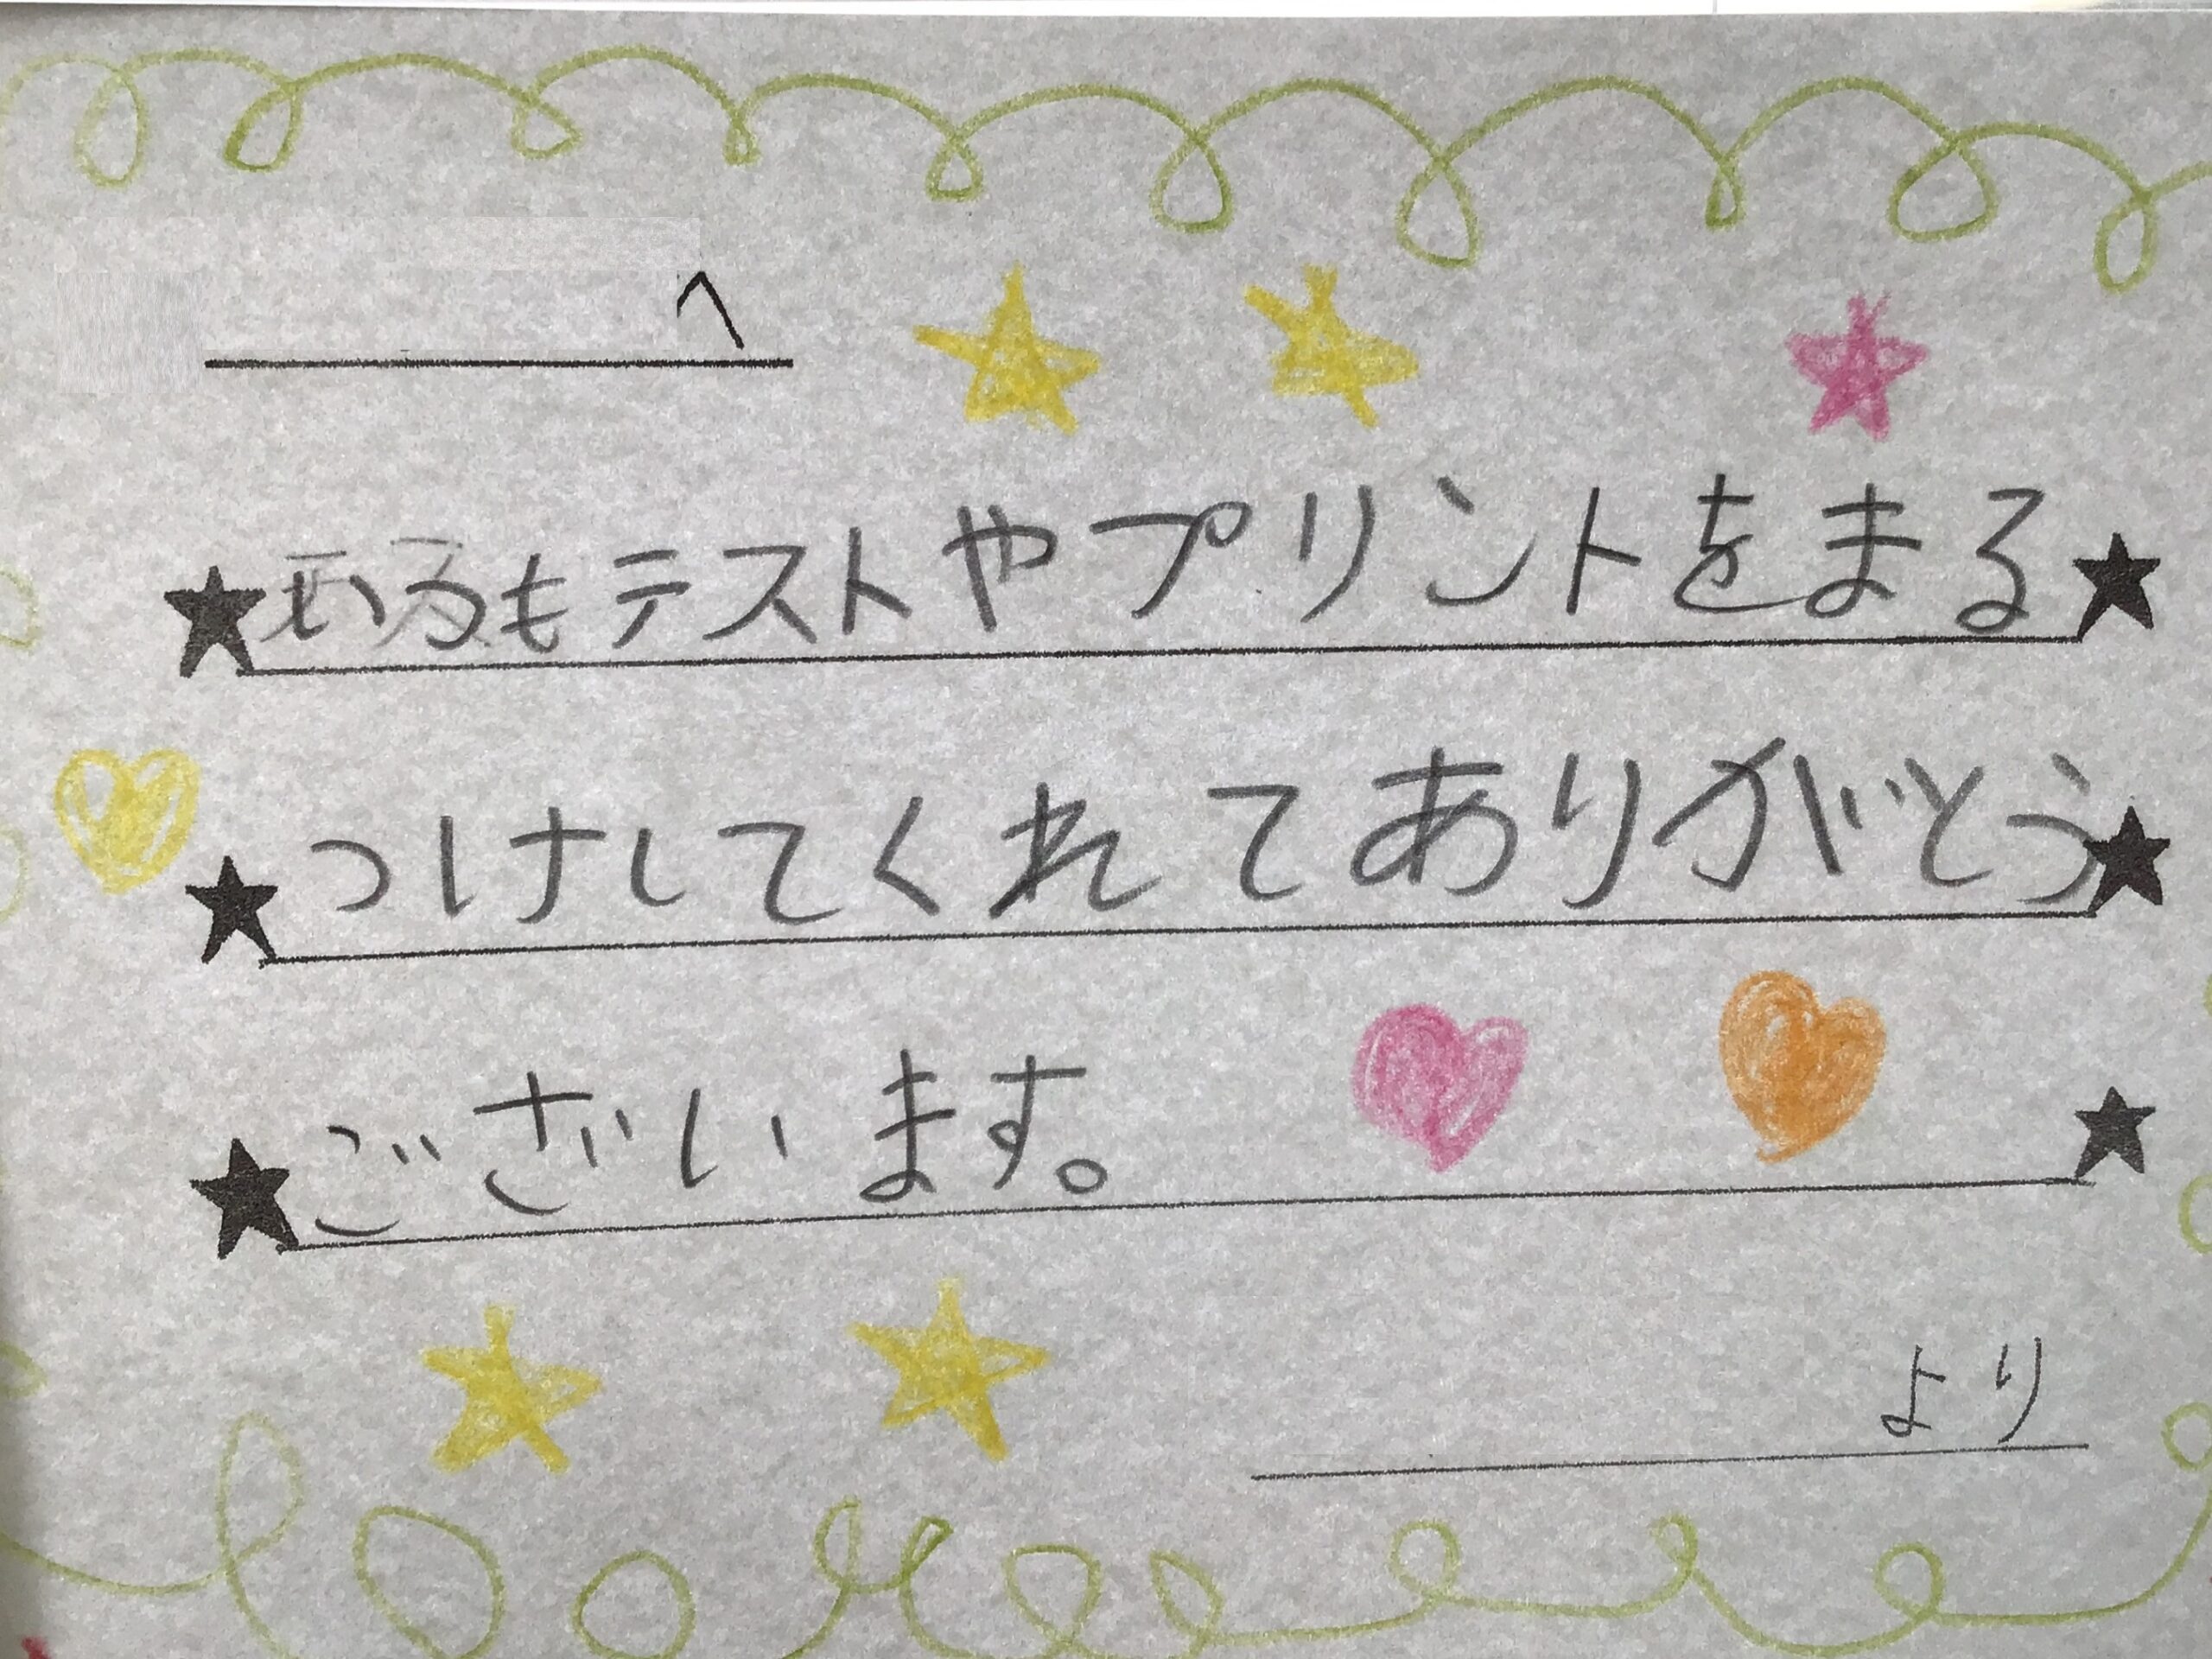 へ
いつもテストやプリントをまる
つけしてくれてありがとう
ございます。
より